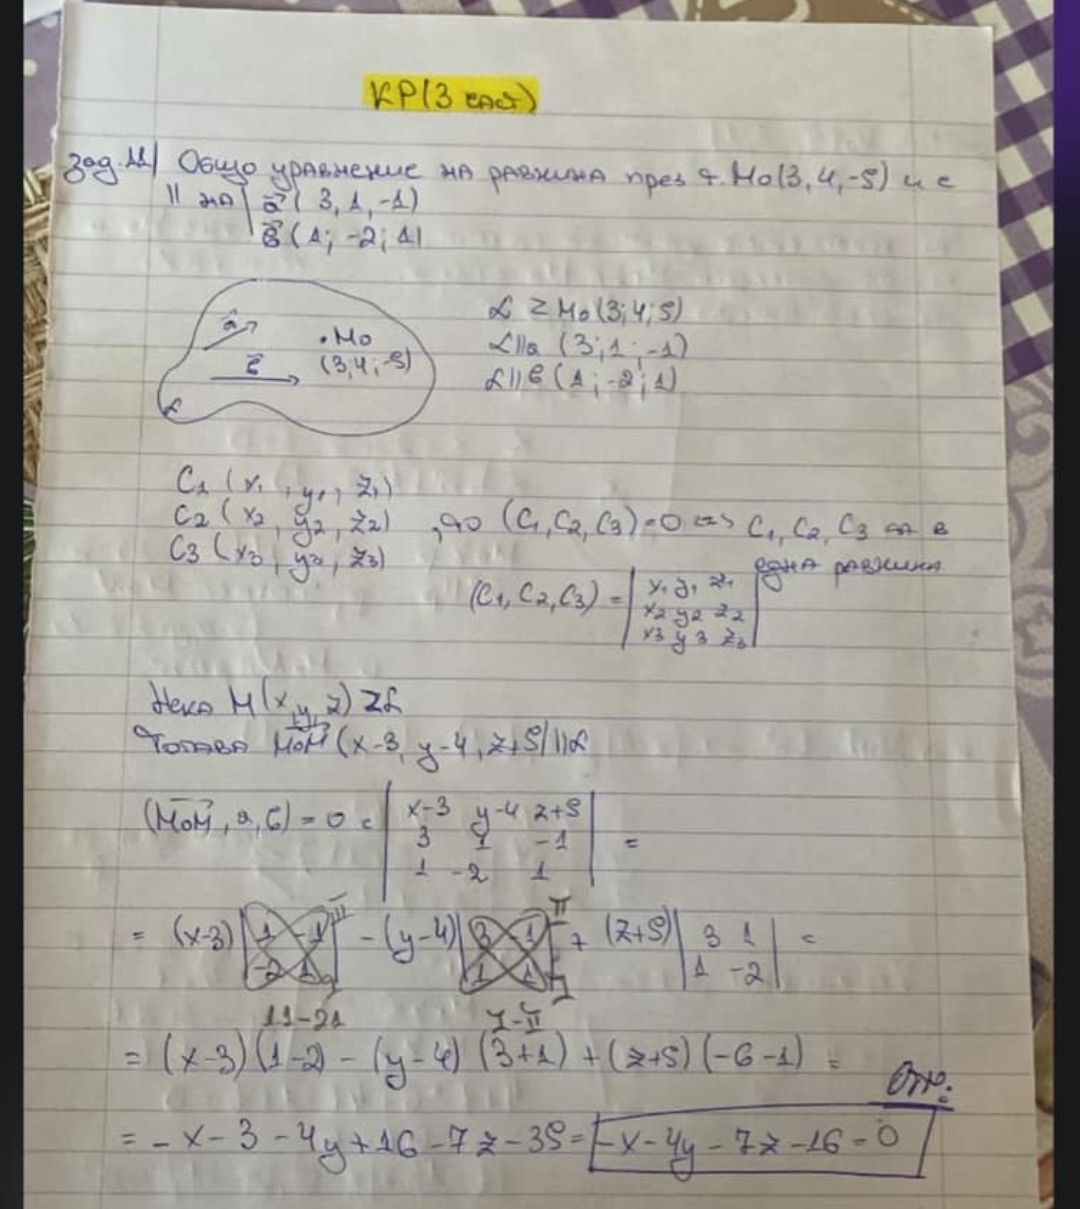 КР(3 част)
зад.11| Общо уравнение на равнина през т. M₀(3,4,-5) и е
|| на | a⃗ ( 3, 1, -1)
b⃗ (1; -2; 1)
a⃗
b⃗
.M₀
(3,4;-5)
α
α Z M₀(3;4;5)
α||a (3;1;-1)
α||b (1;-2;1)
C₁ (x₁, y₁, z₁)
C₂ (x₂, y₂, z₂)
C₃ (x₃, y₃, z₃)
,то (C₁,C₂,C₃)=0 <=> C₁, C₂, C₃ са в
една равнина
(C₁, C₂, C₃) = | x₁ y₁ z₁
x₂ y₂ z₂
x₃ y₃ z₃ |
Нека M(x,y,z) Z α
Тогава M₀M (x-3, y-4, z+5) || α
(M₀M, a, b) = 0 = | x-3 y-4 z+5 |
3 1 -1 =
1 -2 1
= (x-3) | 1 -1 | - (y-4) | 3 -1 | + (z+5) | 3 1 | =
-2 1 1 1 1 -2
= (x-3)(1-2) - (y-4)(3+1) + (z+5)(-6-1) =
Отг:
= -x-3-4y+16-7z-35= -x-4y-7z-16=0